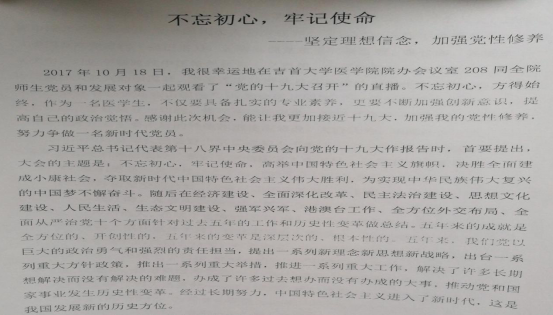 不忘初心，牢记使命
——坚定理想信念，加强党性修养
2017 年 10 月 18 日，我很幸运地在吉首大学医学院院办会议室 208 同全院
师生党员和发展对象一起观看了“党的十九大召开”的直播。不忘初心，方得始
终，作为一名医学生，不仅要具备扎实的专业素养，更要不断加强创新意识，提
高自己的政治觉悟。感谢此次机会，能让我更加接近十九大，加强我的党性修养，
努力争做一名新时代党员。
习近平总书记代表第十八界中央委员会向党的十九大作报告时，首要提出，
大会的主题是：不忘初心，牢记使命，高举中国特色社会主义旗帜，决胜全面建
成小康社会，夺取新时代中国特色社会主义伟大胜利，为实现中华民族伟大复兴
的中国梦不懈奋斗。随后在经济建设、全面深化改革、民主法治建设、思想文化
建设、人民生活、生态文明建设、强军兴军、港澳台工作、全方位外交布局、全
面从严治党十个方面针对过去五年的工作和历史性变革做总结。五年来的成就是
全方位的、开创性的，五年来的变革是深层次的、根本性的。五年来，我们党以
巨大的政治勇气和强烈的责任担当，提出一系列新理念新思想新战略，出台一系
列重大方针政策，推出一系列重大举措，推进一系列重大工作，解决了许多长期
想解决而没有解决的难题，办成了许多过去想办而没有办成的大事，推动党和国
家事业发生历史性变革。经过长期努力，中国特色社会主义进入了新时代，这是
我国发展新的历史方位。